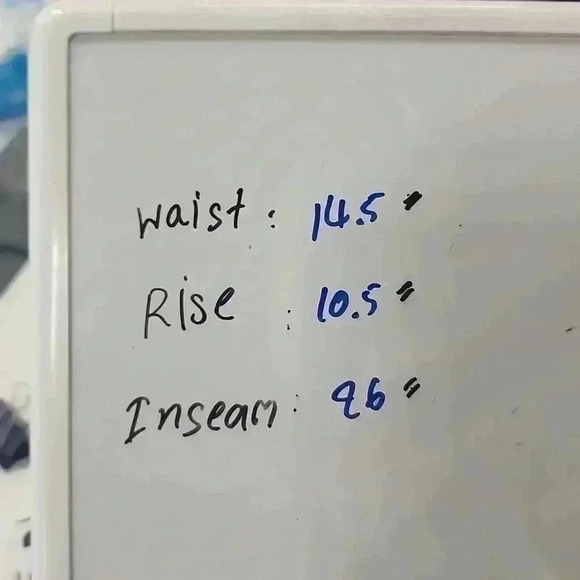 Waist : 14.5"
Rise : 10.5"
Inseam : 26"